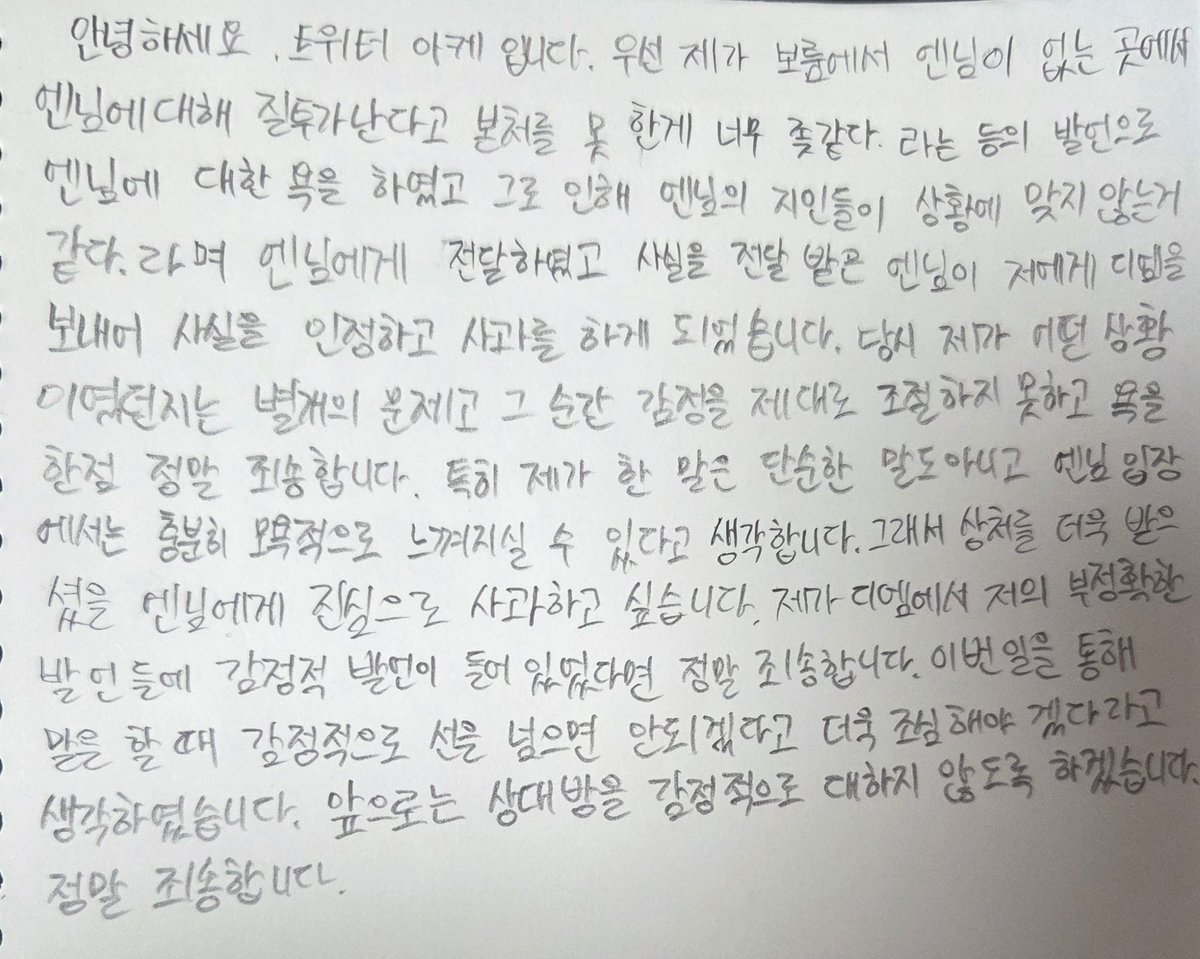 안녕하세요. 트위터 아케 입니다. 우선 제가 보름에서 엔님이 없는 곳에서
엔님에 대해 질투가난다고 본처를 못 한게 너무 좆같다. 라는 등의 발언으로
엔님에 대한 욕을 하였고 그로 인해 엔님의 지인들이 상황에 맞지 않는거
같다. 라며 엔님에게 전달하였고 사실을 전달 받은 엔님이 저에게 디엠을
보내어 사실을 인정하고 사과를 하게 되었습니다. 당시 제가 어떤 상황
이였던지는 별개의 문제고 그 순간 감정을 제대로 조절하지 못하고 욕을
한점 정말 죄송합니다. 특히 제가 한 말은 단순한 말도아니고 엔님 입장
에서는 충분히 모욕적으로 느껴지실 수 있다고 생각합니다. 그래서 상처를 더욱 받으
셨을 엔님에게 진심으로 사과하고 싶습니다. 제가 디엠에서 저의 부정확한
발언들에 감정적 발언이 들어 있었다면 정말 죄송합니다. 이번일을 통해
말을 할 때 감정적으로 선을 넘으면 안되겠다고 더욱 조심해야 겠다라고
생각하였습니다. 앞으로는 상대방을 감정적으로 대하지 않도록 하겠습니다
정말 죄송합니다.